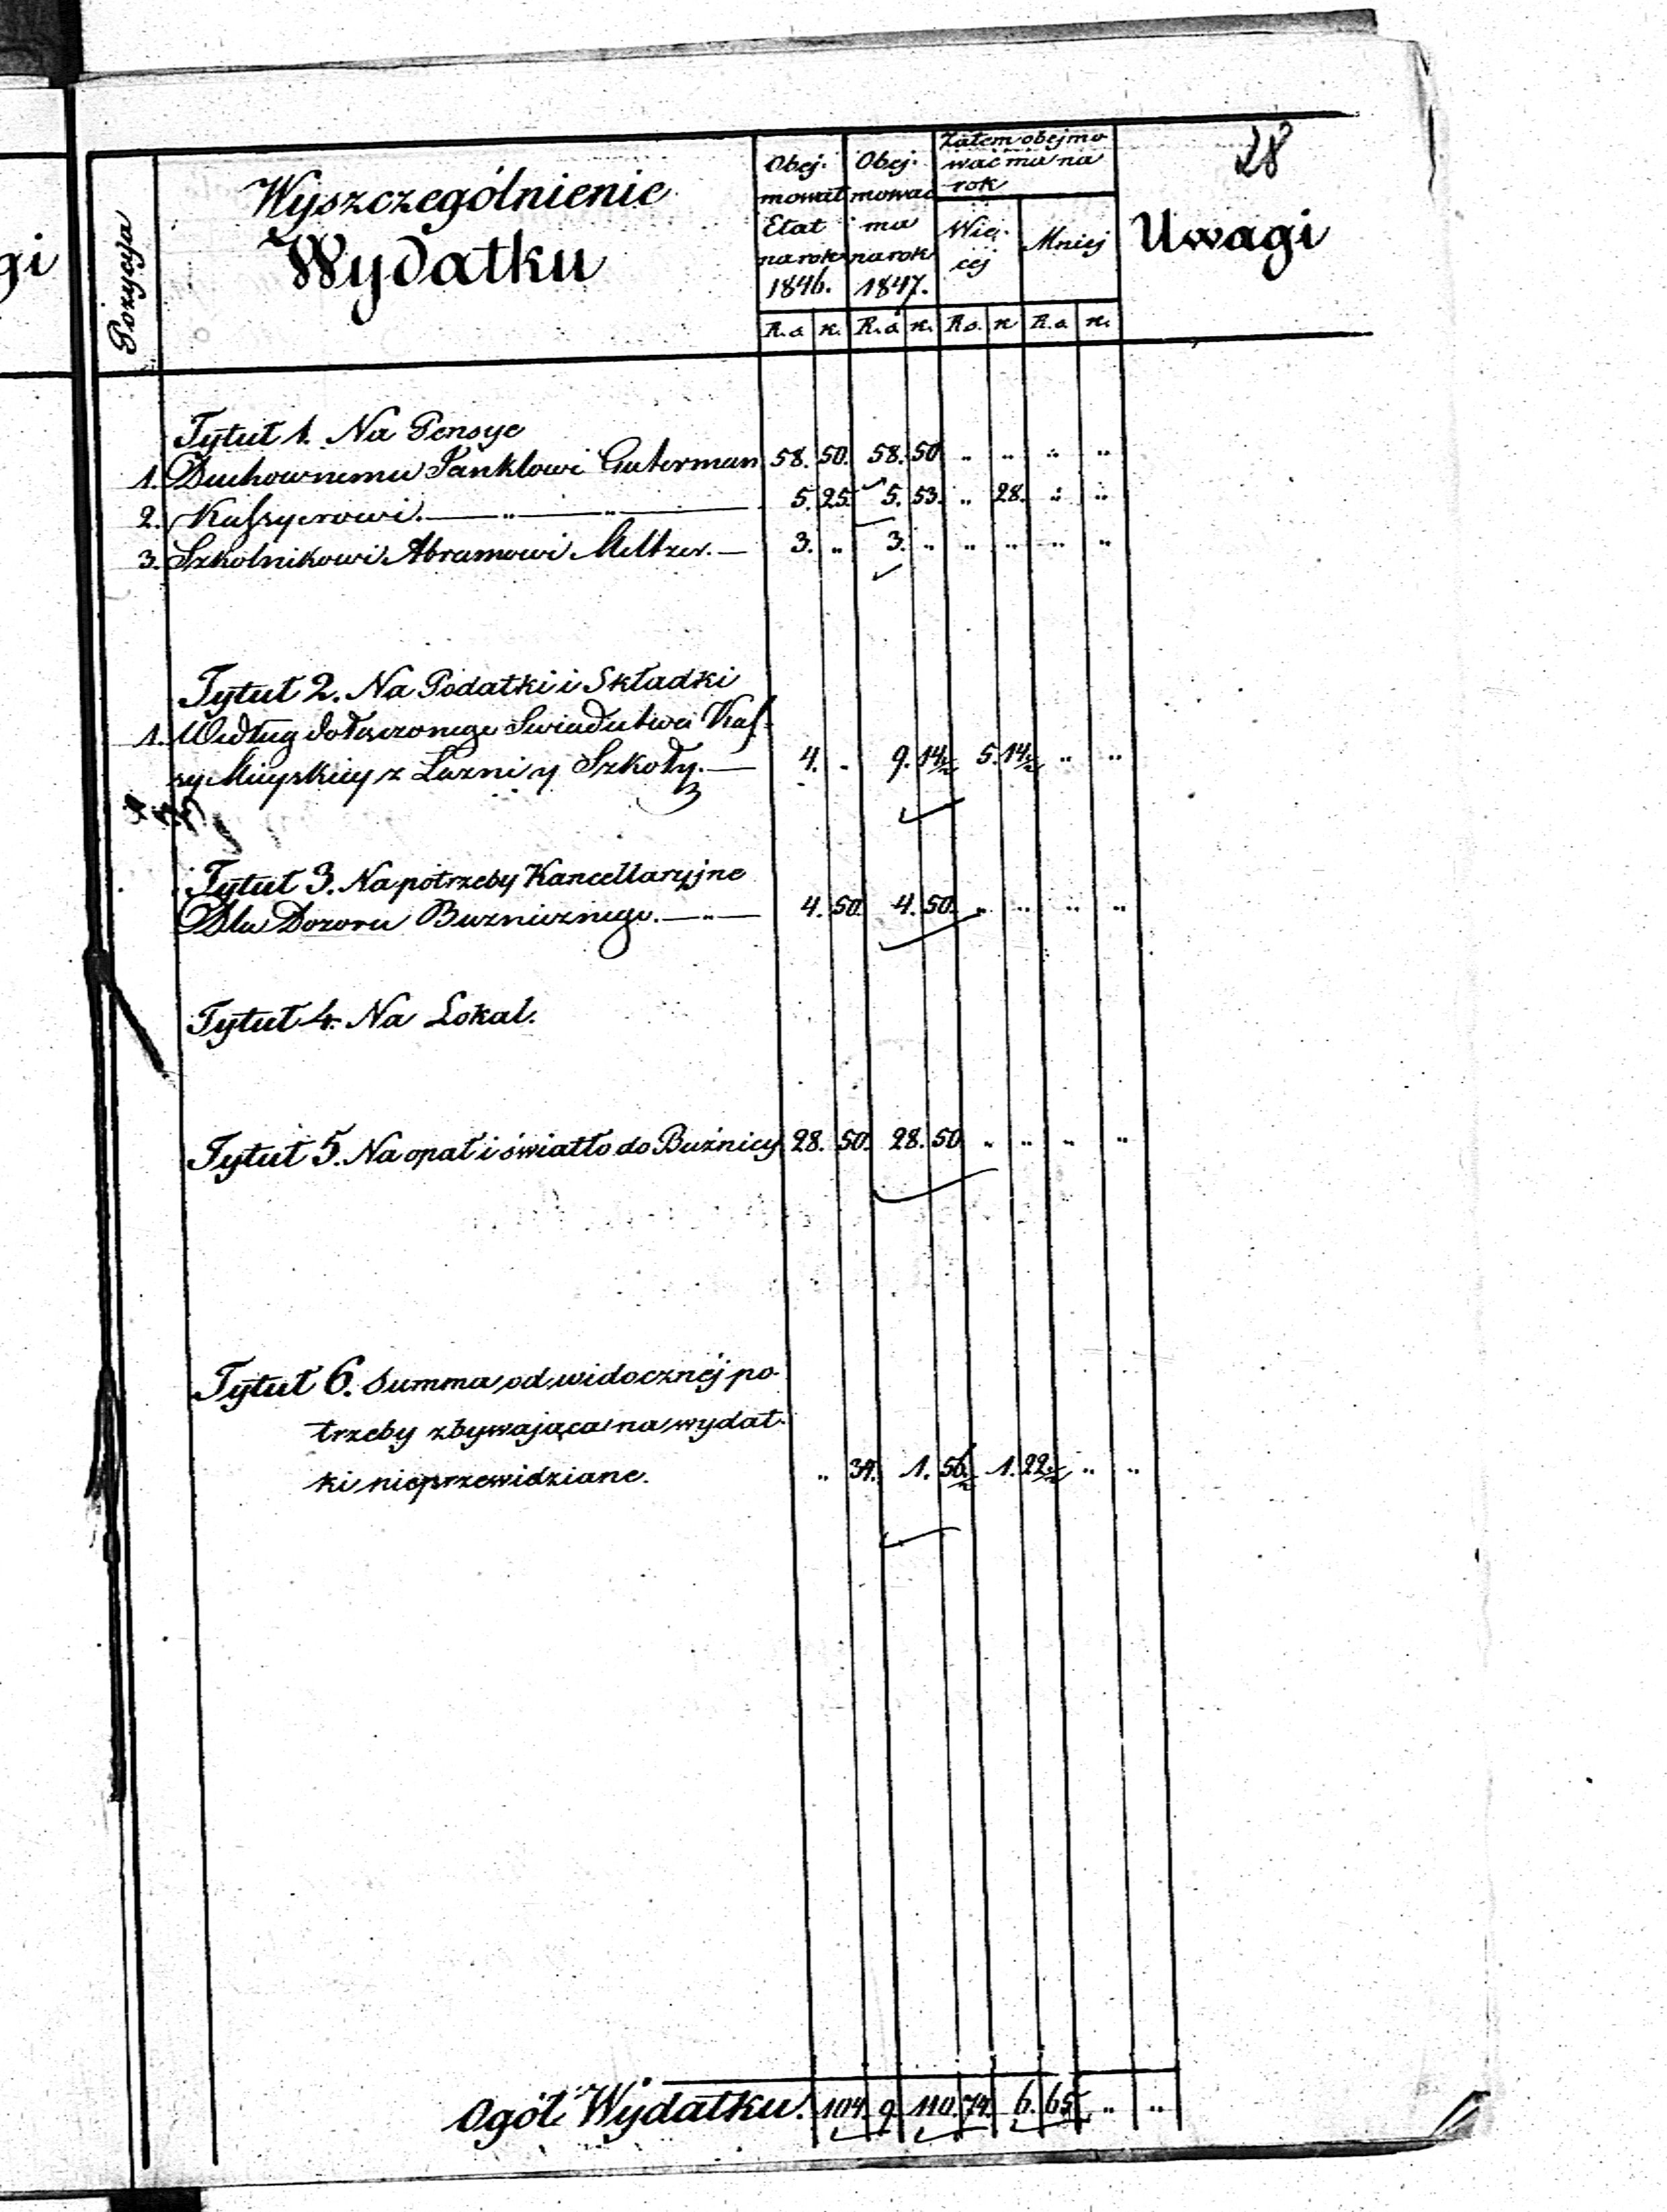 28
gi
Pozycyja
Wyszczególnienie
Wydatku
Obej- mował Etat na rok 1846.
Obej- mować ma na rok 1847.
Zatem obejmo- wać ma na rok
Wię- cej
Mniej
Uwagi
R.s k. R.s k. Rs. k R.s k.
Tytuł 1. Na Pensye
1. Duchownemu Jankłowi Guterman 58. 50. 58. 50 .. .. .. ..
2. Kassyerowi. — „ — „ — 5. 25. 5. 53. .. 28. .. ..
3. Szkolnikowi Abramowi Meltzer. — 3. .. 3. .. .. .. .. ..
Tytuł 2. Na Podatki i Składki
1. Według dołączonego Swiadectwa Kas-
sy Mieyskiey z Łazni y Szkoły. — 4. .. 9. 14½ 5. 14½ .. ..
Tytuł 3. Na potrzeby Kancellaryjne
Dla Dozoru Buznicznego. — „ — 4. 50. 4. 50. .. .. .. ..
Tytuł 4. Na Lokal.
Tytuł 5. Na opał i światło do Buźnicy 28. 50. 28. 50 .. .. .. ..
Tytuł 6. Summa od widocznéj po-
trzeby zbywająca na wydat-
ki nieprzewidziane. .. 34. 1. 56½ 1. 22½ .. ..
Ogół Wydatku. 104. 9. 110. 74. 6. 65. .. ..